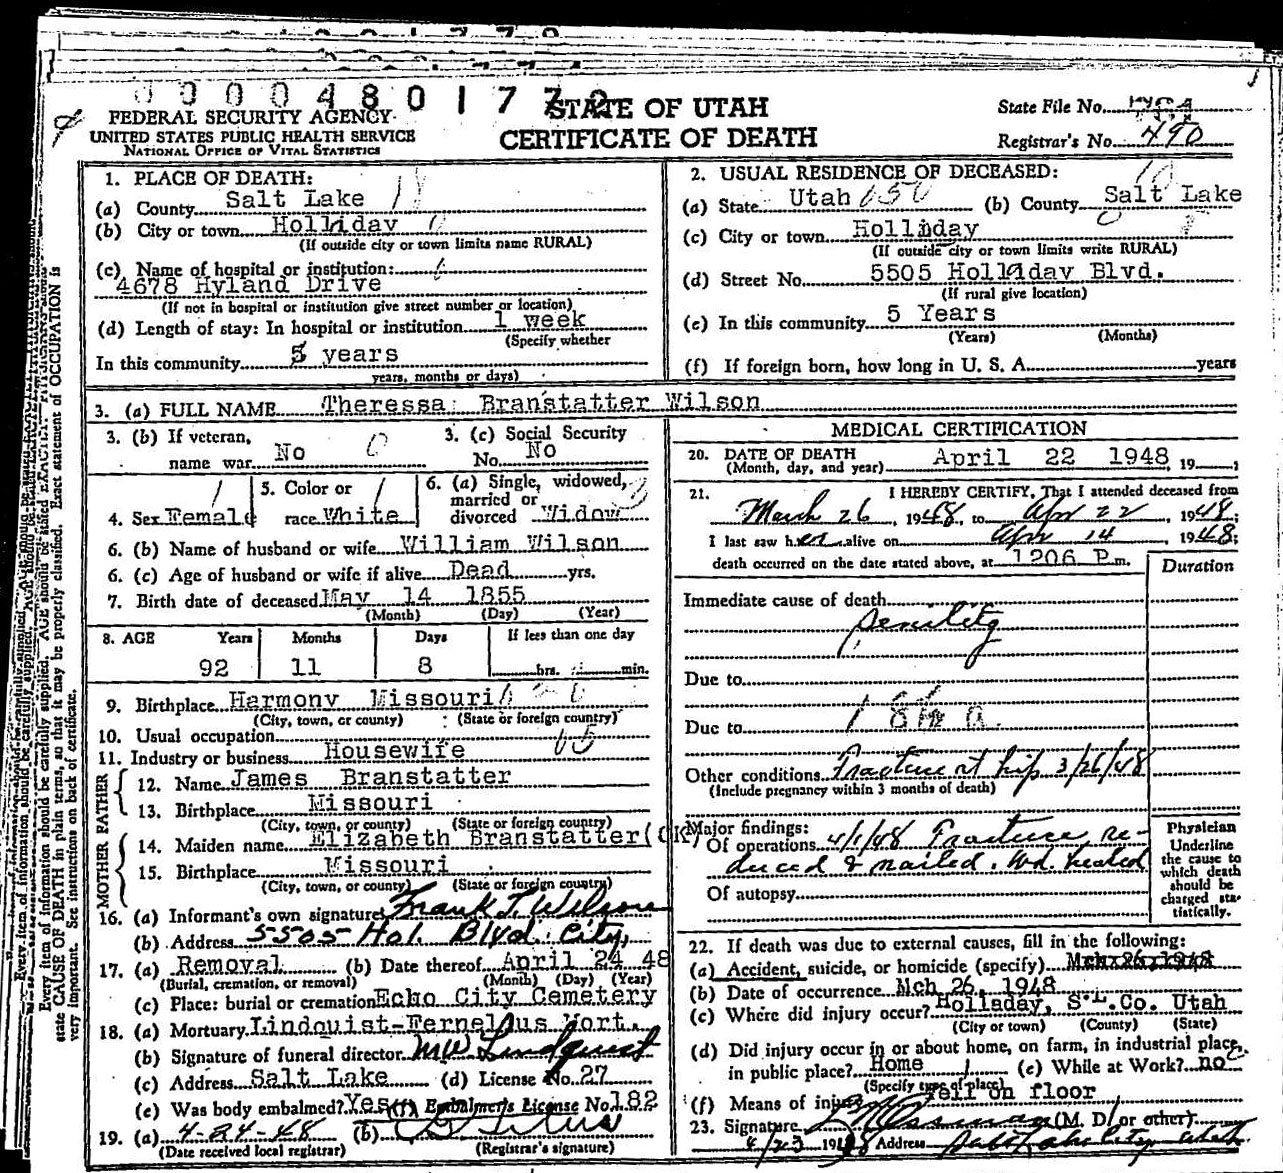 0000480177
STATE OF UTAH
CERTIFICATE OF DEATH
FEDERAL SECURITY AGENCY
UNITED STATES PUBLIC HEALTH SERVICE
NATIONAL OFFICE OF VITAL STATISTICS
State File No.
Registrar's No. 490
1. PLACE OF DEATH:
(a) County Salt Lake
(b) City or town Holladay
(If outside city or town limits name RURAL)
(c) Name of hospital or institution:
4678 Hyland Drive
(If not in hospital or institution give street number or location)
(d) Length of stay: In hospital or institution 1 week
(Specify whether
In this community 5 years
years, months or days)
2. USUAL RESIDENCE OF DECEASED:
(a) State Utah 650 (b) County Salt Lake
(c) City or town Holladay
(If outside city or town limits write RURAL)
(d) Street No. 5505 Holladay Blvd.
(If rural give location)
(e) In this community 5 Years
(Years) (Months)
(f) If foreign born, how long in U. S. A. years
3. (a) FULL NAME Theressa Branstatter Wilson
3. (b) If veteran, name war No 0
3. (c) Social Security No. No
4. Sex Female
5. Color or race White
6. (a) Single, widowed, married or divorced Widow
6. (b) Name of husband or wife William Wilson
6. (c) Age of husband or wife if alive Dead yrs.
7. Birth date of deceased May 14 1855
(Month) (Day) (Year)
8. AGE Years Months Days If less than one day
92 11 8 hrs. min.
9. Birthplace Harmony Missouri
(City, town, or county) (State or foreign country)
10. Usual occupation
11. Industry or business Housewife
FATHER
12. Name James Branstatter
13. Birthplace Missouri
(City, town, or county) (State or foreign country)
MOTHER
14. Maiden name Elizabeth Branstatter (OK)
15. Birthplace Missouri
(City, town, or county) (State or foreign country)
16. (a) Informant's own signature Frank T. Wilson
(b) Address 5505 Hol. Blvd. City,
17. (a) Removal (b) Date thereof April 24 48
(Burial, cremation, or removal) (Month) (Day) (Year)
(c) Place: burial or cremation Echo City Cemetery
18. (a) Mortuary Lindquist-Fernelius Mort.
(b) Signature of funeral director MW Lindquist
(c) Address Salt Lake (d) License No. 27
(e) Was body embalmed? Yes (f) Embalmer's License No. 182
19. (a) 4-24-48 (b)
(Date received local registrar) (Registrar's signature)
MEDICAL CERTIFICATION
20. DATE OF DEATH April 22 1948, 19
(Month, day, and year)
21. I HEREBY CERTIFY, That I attended deceased from
March 26, 1948, to Apr 22, 1948;
I last saw her alive on Apr 14, 1948;
death occurred on the date stated above, at 1206 P m.
Duration
Immediate cause of death
Senility
Due to
Due to
Other conditions Fracture rt hip 3/26/48
(Include pregnancy within 3 months of death)
Major findings:
Of operations 4/1/48 Fracture re-
duced & nailed. Wd. healed
Of autopsy
Physician
Underline the cause to which death should be charged statistically.
22. If death was due to external causes, fill in the following:
(a) Accident, suicide, or homicide (specify)
(b) Date of occurrence Mch 26, 1948
(c) Where did injury occur? Holladay, S.L.Co. Utah
(City or town) (County) (State)
(d) Did injury occur in or about home, on farm, in industrial place,
in public place? Home (e) While at Work? no
(Specify type of place)
(f) Means of injury Fell on floor
23. Signature (M. D. or other)
4/23 1948 Address Salt Lake City Utah
Every item of information should be carefully supplied. AGE should be stated EXACTLY.
state CAUSE OF DEATH in plain terms, so that it may be properly classified. Exact statement of OCCUPATION is
very important. See instructions on back of certificate.